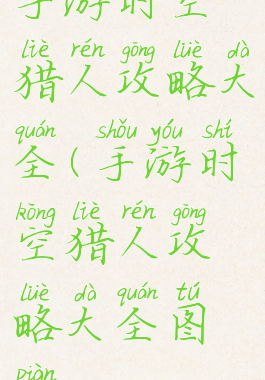 手游时空
liè rén gōng lüè dà
猎人攻略大
quán shǒu yóu shí
全(手游时
kōng liè rén gōng
空猎人攻
lüè dà quán tú
略大全图
piàn